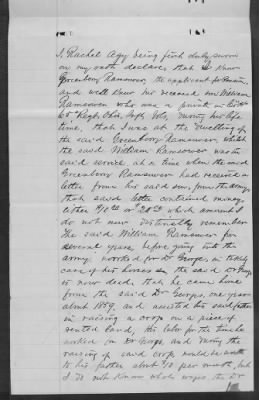 I, Rachel Agy being first duly sworn
on my oath declare, that I knew
Greenbury Ramsower, the applicant for Pension
and well knew his deceased son William
Ramsower who was a private in
65" Regt, Ohio, Infty Vols, during his life
time, that I was at the dwelling of
the said Greenbury Ramsower, whilst
the said William Ramsower was in
said service, at a time when the said
Greenbury Ramsower had received a
letter from his said son, from the army,
that said letter contained money,
either $10.00 or 20.00 which amount I
do not now distinctly remember
The said William Ramsower for
several years, before going into the
army worked for Dr George, in taking
care of his horses the said Dr George
is now dead, that he came home
from the said Dr Georges, one year
about 1859, and assisted his said father
in raising a crop on a piece of
rented land, His labor for the time he
worked for Dr George, and during the
raising of said crop would be worth
to his father about $8 per month, but
I do not know what wages the Dr